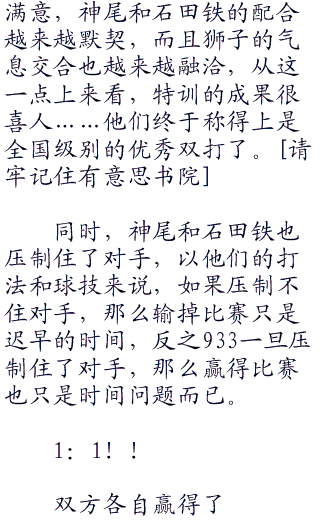 满意，神尾和石田铁的配合
越来越默契，而且狮子的气
息交合也越来越融洽，从这
一点上来看，特训的成果很
喜人……他们终于称得上是
全国级别的优秀双打了。[请
牢记住有意思书院]
同时，神尾和石田铁也
压制住了对手，以他们的打
法和球技来说，如果压制不
住对手，那么输掉比赛只是
迟早的时间，反之933一旦压
制住了对手，那么赢得比赛
也只是时间问题而已。
1：1！！
双方各自赢得了